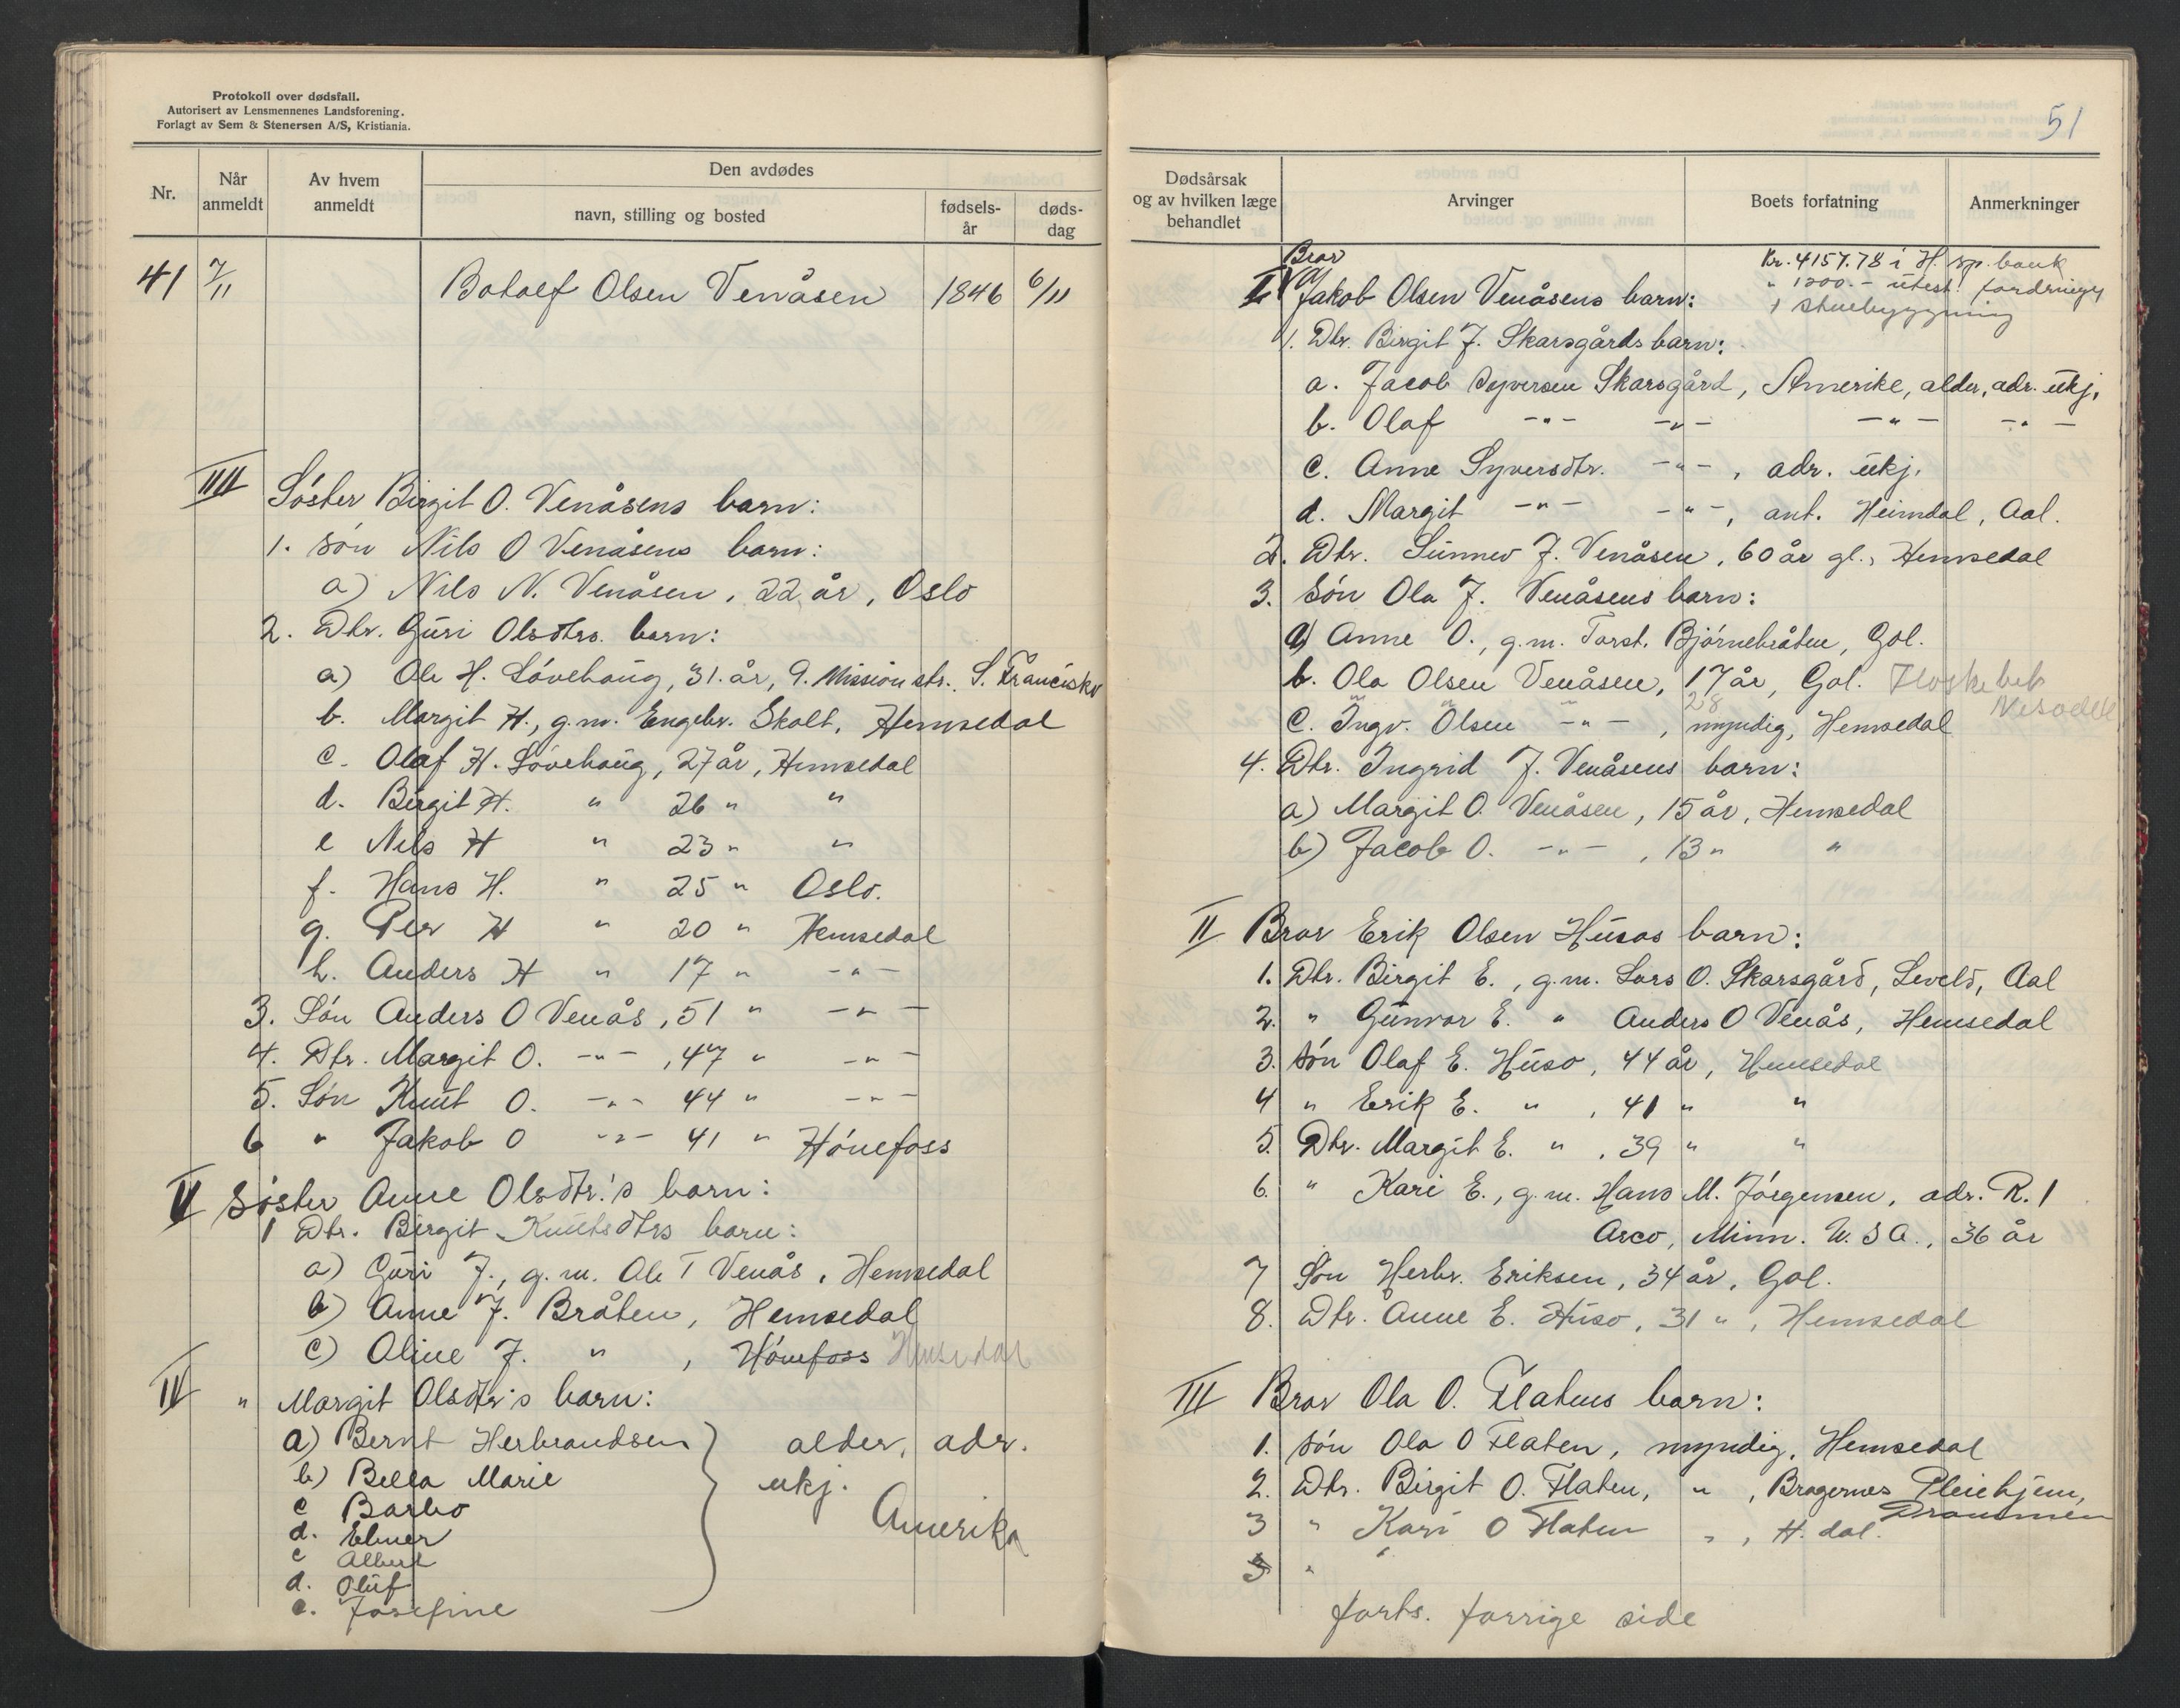 Protokoll over dødsfall.
Autorisert av Lensmennenes Landsforening.
Forlagt av Sem & Stenersen A/S, Kristiania.
Nr.
Når anmeldt
Av hvem anmeldt
Den avdødes
navn, stilling og bosted
fødsels-år
døds-dag
41 7/11 Botolf Olsen Venåsen 1846 6/11
IIII Søster Birgit O. Venåsens barn:
1. Søn Nils O Venåsens barn:
a) Nils N. Venåsen, 22 år, Oslo
2. Dtr. Guri Olsdtrs. barn:
a) Ole H. Løvehaug, 31. år, 9. Mission str. S. Francisko
b. Margit H., g.m. Engebr. Skolt, Hemsedal
c. Olaf H. Løvehaug, 27 år, Hemsedal
d. Birgit H. " 26 " "
e Nils H " 23 " "
f. Hans H. " 25 " Oslo.
g. Per H " 20 " Hemsedal
h. Anders H " 17 " -"-
3. Søn Anders O Venås, 51 " -"-
4. Dtr. Margit O. -"- , 47 " -"-
5. Søn Knut O. -"- 44 " -"-
6 " Jakob O -"- 41 " Hønefoss
V Søster Anne Olsdtr.'s barn:
1 Dtr. Birgit Knutsdtrs barn:
a) Guri J., g.m. Ole T Venås, Hemsedal
b) Anne J. Bråten, Hemsedal
c) Oline J. " , Hønefoss Hemsedal
IV " Margit Olsdtr's barn:
a) Bernt Herbrandsen } alder, adr.
b) Bella Marie ukj.
c Barbo Amerika
d. Elmer
c Albert
d. Oluf
e. Josefine
51
Dødsårsak og av hvilken læge behandlet
Arvinger
Boets forfatning
Anmerkninger
Bror
Kr. 4157.78 i H. sp. bank
I Jakob Olsen Venåsens barn: " 1200.- utest. fordringer
+ stuebygning
1. Dtr. Birgit J. Skarsgårds barn:
a. Jacob Syversen Skarsgård, Amerike, alder, adr. ukj.
b. Olaf -"- -"- -"- -"-
c. Anne Syversdtr. -"- , adr. ukj.
d. Margit -"- -"-, ant. Heimdal, Aal.
2. Dtr. Sunnev J. Venåsen, 60 år gl., Hemsedal
3. Søn Ola J. Venåsens barn:
a) Anne O., g.m. Torst. Bjørnebråten, Gol.
b. Ola Olsen Venåsen, 17 år, Gol.
28
c. Ingv. Olsen -"- , myndig, Hemsedal
4. Dtr. Ingrid J. Venåsens barn:
a) Margit O. Venåsen, 15 år, Hemsedal
b) Jacob O. -"- , 13 " "
II Bror Erik Olsen Husos barn:
1. Dtr. Birgit E., g.m. Lars O. Skarsgård, Leveld, Aal
2. " Gunvor E. " Anders O Venås, Hemsedal
3. Søn Olaf E. Huso, 44 år, Hemsedal
4 " Erik E. " , 41 " "
5. Dtr. Margit E. " , 39 " "
6. " Kari E., g.m. Hans M. Jørgensen, adr. R. 1
Asco, Minn. U. S A., 36 år
7 Søn Herbr. Eriksen, 34 år, Gol.
8. Dtr. Anne E. Huso, 31 ", Hemsedal
III Bror Ola O. Flatens barn:
1. Søn Ola O Flaten, myndig, Hemsedal
2. Dtr. Birgit O. Flaten, " , Bragernes Pleiehjem, Drammen
3 " Kari O Flaten " , H. dal.
3 "
forts. forrige side